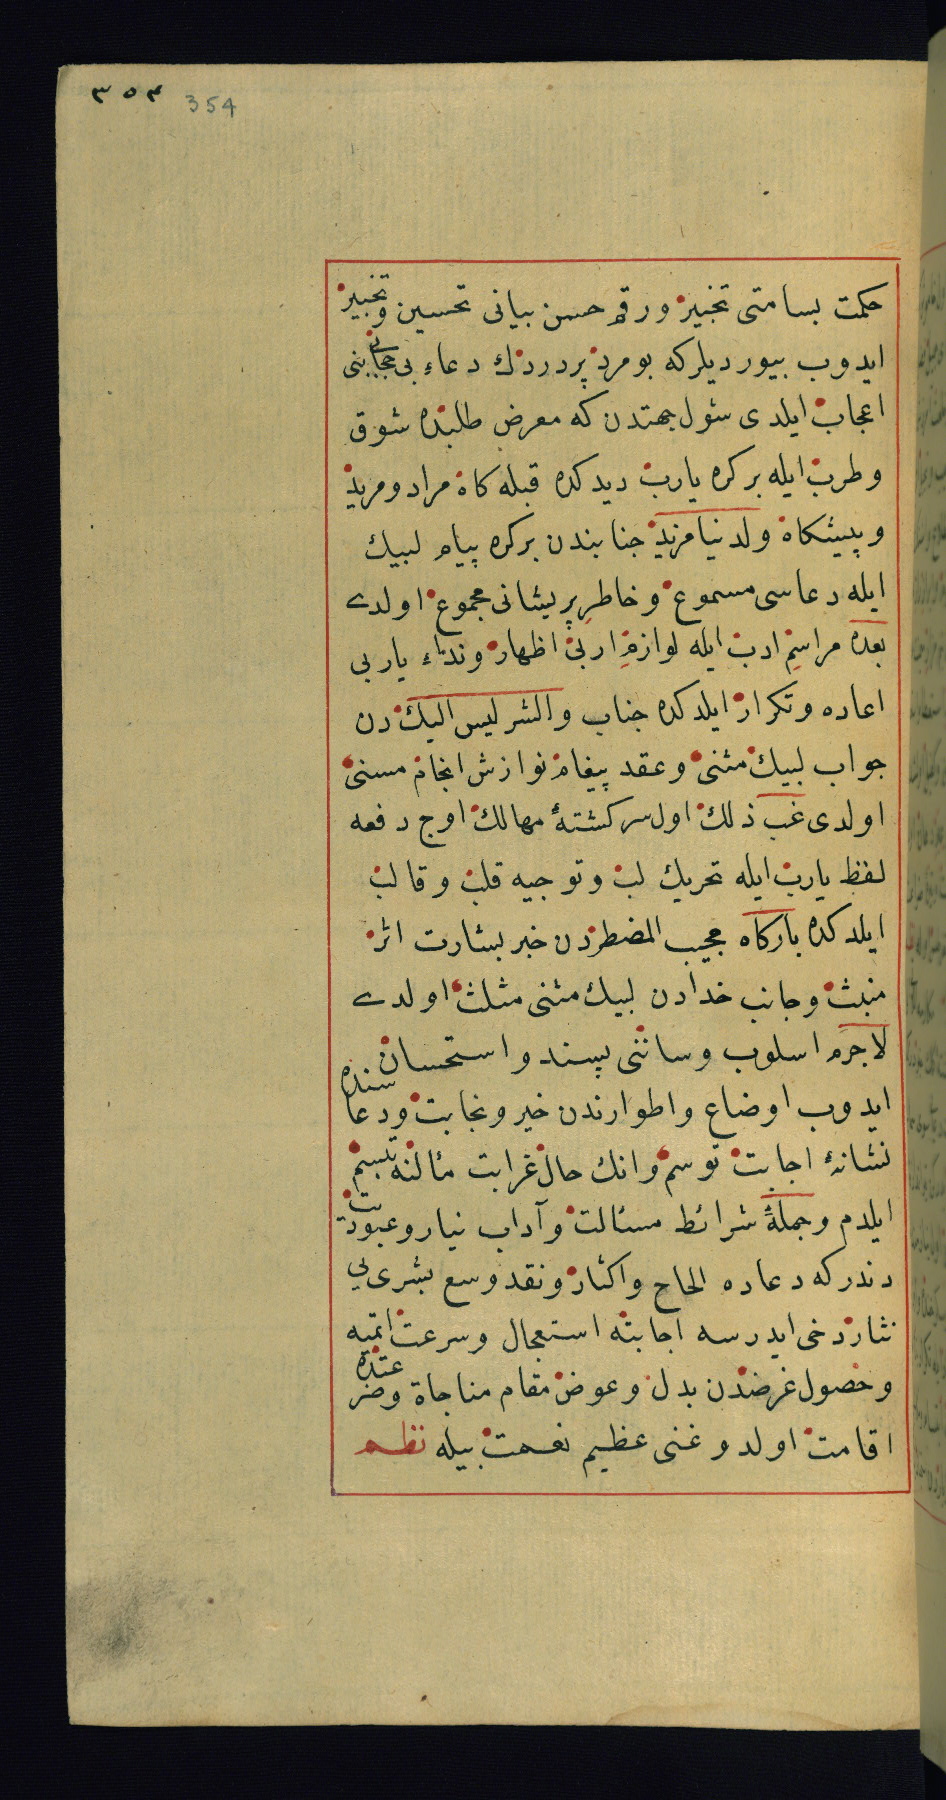 ٣٥٤ 354
حكمت بسامتى تخبير ورقم حسن بيانى تحسين وتحبير
ايدوب بيورديلركه بو مرد پردردك دعاء بى حجابينى
اعجاب ايلدى شول جهتدن كه معرض طلبده شوق
وطرب ايله بركره يارب ديدكده قبله كاه مراد ومريد
وپيشكاه ولدينا مزيد جنابندن بركره پيام لبيك
ايله دعاسى مسموع وخاطر پريشانى مجموع اولدى
بعده مراسم ادب ايله لوازم اربى اظهار ونداء ياربى
اعاده وتكرار ايلدكده جناب والشر ليس اليك دن
جواب لبيك مثنى وعقد پيغام نوازش انجام مسنى
اولدى غب ذلك اول سركشتهٔ مهالك اوج دفعه
لفظ يارب ايله تحريك لب وتوجيه قلب وقالب
ايلدكده باركاه مجيب المضطردن خبر بشارت اثر
منبث وجانب خدادن لبيك مثنى مثلث اولدى
لاجرم اسلوب وساننى پسند واستحسان
ايدوب اوضاع واطوارندن خير ونجابت ودعاسنده
نشانهٔ اجابت توسم وانك حال غرابت مئالنه تبسم
ايلدم وجملهٔ شرائط مسئالت وآداب نياز وعبوديت
دندركه دعاده الحاح واكثار ونقد وسع بشرى يى
نثار دخى ايدرسه اجابته استعجال وسرعت اتميه
وحصول غرضدن بدل وعوض مقام مناجاة وضرعتده
اقامت اولدوغنى عظيم نعمت بيله نظم